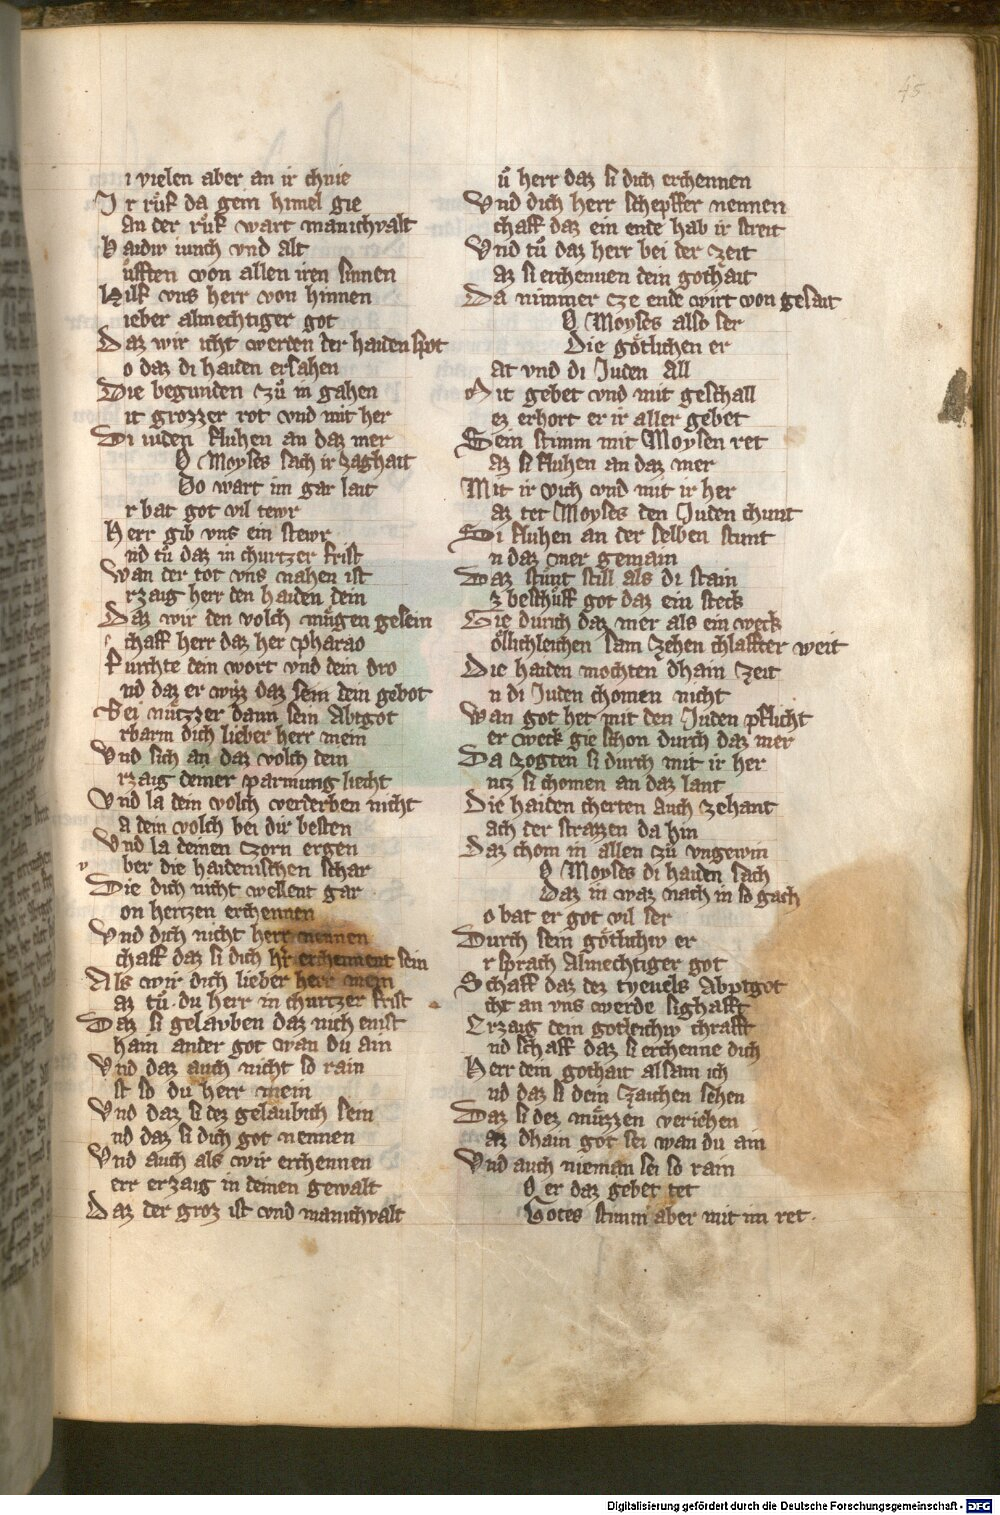 45
i vielen aber an ir chnie
Ir růf da gein himel gie
an der růf wart manichvalt
Baidiv iunch vnd alt
ůfften von allen iren sinnen
Hilf vns herr von hinnen
ieber almechtiger got
Daz wir icht werden der haiden spot
o daz di haiden ersahen
Die begunden zů in gahen
it grozzer rot vnd mit her
Di iuden fluhen an daz mer
O Moyses sach ir zaghait
Do wart im gar lait
r bat got vil tewr
Herr gib vns ein stewr
nd tů daz in churtzer frist
Wan der tot vns nahen ist
rzaig herr den haiden dein
Daz wir den volch mügen gesein
chaff herr daz her pharao
Furchte dein wort vnd dein dro
nd daz er wizz daz sein dein gebot
Sei nützzer dann sein Abtgot
rbarm dich lieber herr mein
Vnd sich an daz volch dein
rzaig deiner parmung liecht
Vnd la dein volch verderben nicht
a dein volch bei dir besten
Vnd la deinen zorn ergen
v ber die haidenischen schar
Die dich nicht wellent gar
on hertzen erchennen
Vnd dich nicht herr nennen
chaff daz si dich hr erchennent sein
Als wir dich lieber herr mein
az tů du herr in churtzer frist
Daz si gelauben daz nich enist
hain ander got wan du ain
Vnd daz auch nicht so rain
st so du herr mein
Vnd daz si dez gelaubich sein
nd daz si dich got nennen
Vnd auch als wir erchennen
err erzaig in deinen gewalt
Daz der groz ist vnd manichvalt
ů herr daz si dich erchennen
Vnd dich herr schepffer nennen
chaff daz ein ende hab ir streit
Vnd tů daz herr bei der zeit
az si erchennen dein gothait
Da nimmer cze ende wirt von gesait
O Moyses also ser
Die götlichen er
at vnd di Juden all
Mit gebet vnd mit geschall
ez erhort er ir aller gebet
Sein stimm mit Moysen ret
az si fluhen an daz mer
Mit ir vich vnd mit ir her
az tet Moyses den Juden chunt
Si fluhen an der selben stunt
n daz mer gemain
Daz stůnt still als di stain
z beschůff got daz ein steck
Gie durch daz mer als ein weck
öllichleichen sam zehen chlaffter weit
Die haiden mochten dhain zeit
n di Juden chomen nicht
Wan got het mit den Juden pflicht
er weck gie schon durch daz mer
Da zogten si durch mit ir her
ntz si chomen an daz lant
Die haiden cherten auch zehant
ach der strazzen da hin
Daz chom in allen zů vngewin
O Moyses di haiden sach
Daz in waz nach in so gach
o bat er got vil ser
Durch sein götlichiv er
r sprach Almechtiger got
Schaff daz dez tyeuels Abptgot
cht an vns werde sighafft
Erzaig dein gotleichiv chrafft
nd schaff daz si erchenne dich
Herr dein gothait alsam ich
nd daz si dein Zaichen sehen
Daz si dez müzzen veriehen
az dhain got sei wan du ain
Vnd auch nieman sei so rain
O er daz gebet tet
Gotes stimm aber mit im ret.
Digitalisierung gefördert durch die Deutsche Forschungsgemeinschaft - DFG